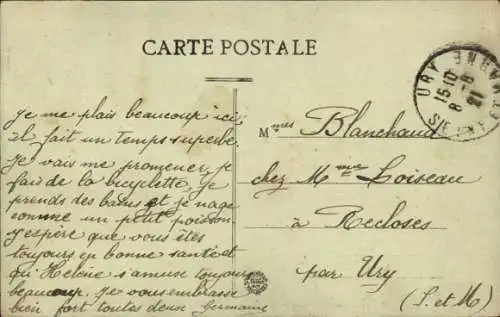 CARTE POSTALE
URY SNE & MARNE
15 10
8 -8
21
Je me plais beaucoup ici
il fait un temps superbe
je vais me promener, je
fais de la bicyclette, je
prends des bains et je nage
comme un petit poisson
j'espère que vous êtes
toujours en bonne santé et
qu'Helène s'amuse toujours
beaucoup, je vous embrasse
bien fort toutes deux Germaine
Mmes Blanchaud
chez Mme Loiseau
à Recloses
par Ury
(S. et M)